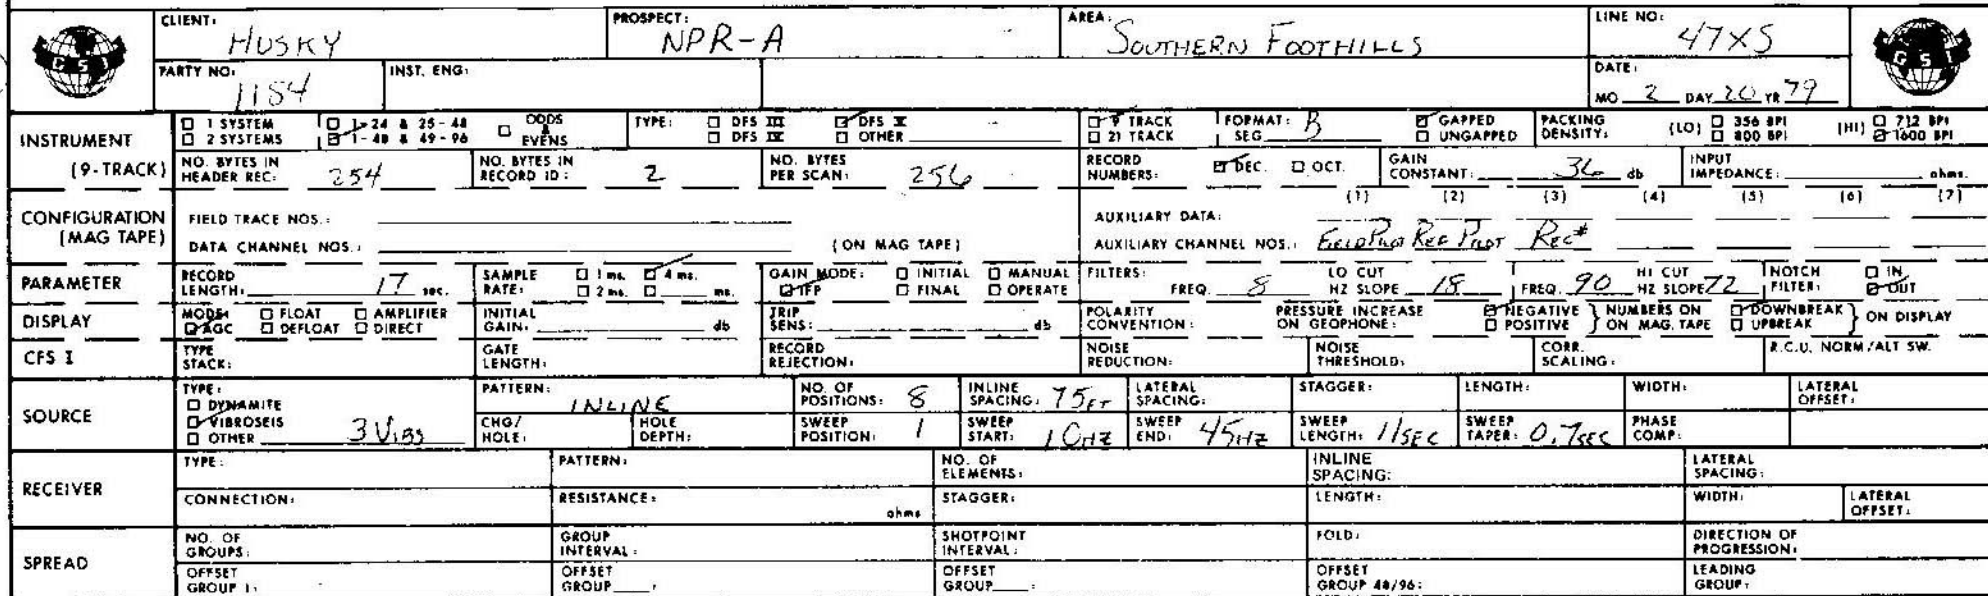 CLIENT: HUSKY PROSPECT: NPR-A AREA: SOUTHERN FOOTHILLS LINE NO: 47XS
GSI GSI
PARTY NO: 1184 INST. ENG: DATE: MO 2 DAY 20 YR 79
INSTRUMENT (9-TRACK)
☐ 1 SYSTEM ☐ 1-24 & 25-48 ☐ ODDS & EVENS TYPE: ☐ DFS III ☑ DFS V ☑ 9 TRACK FORMAT: SEG B ☑ GAPPED PACKING DENSITY: (LO) ☐ 356 BPI (HI) ☐ 712 BPI
☐ 2 SYSTEMS ☑ 1-48 & 49-96 ☐ DFS IV ☐ OTHER ☐ 21 TRACK ☐ UNGAPPED ☐ 800 BPI ☑ 1600 BPI
NO. BYTES IN HEADER REC: 254 NO. BYTES IN RECORD ID: 2 NO. BYTES PER SCAN: 256 RECORD NUMBERS: ☑ DEC. ☐ OCT. GAIN CONSTANT: 36 db INPUT IMPEDANCE: ohms.
CONFIGURATION (MAG TAPE)
(1) (2) (3) (4) (5) (6) (7)
FIELD TRACE NOS.: AUXILIARY DATA:
DATA CHANNEL NOS.: (ON MAG TAPE) AUXILIARY CHANNEL NOS.: FIELD PILOT REF PILOT REC#
PARAMETER
RECORD LENGTH: 17 sec. SAMPLE RATE: ☐ 1 ms. ☑ 4 ms. ☐ 2 ms. ☐ ms. GAIN MODE: ☐ INITIAL ☐ MANUAL ☑ IFP ☐ FINAL ☐ OPERATE FILTERS: FREQ. 8 LO CUT HZ SLOPE 18 FREQ. 90 HI CUT HZ SLOPE 72 NOTCH FILTER: ☐ IN ☑ OUT
DISPLAY
MODE: ☐ FLOAT ☐ AMPLIFIER ☑ AGC ☐ DEFLOAT ☐ DIRECT INITIAL GAIN: db TRIP SENS: db POLARITY CONVENTION: PRESSURE INCREASE ON GEOPHONE: ☑ NEGATIVE ☐ POSITIVE } NUMBERS ON MAG. TAPE ☑ DOWNBREAK ☐ UPBREAK } ON DISPLAY
CFS I TYPE STACK: GATE LENGTH: RECORD REJECTION: NOISE REDUCTION: NOISE THRESHOLD: CORR. SCALING: R.C.U. NORM/ALT SW.
SOURCE
TYPE: ☐ DYNAMITE ☑ VIBROSEIS ☐ OTHER 3 VIBS
PATTERN: INLINE NO. OF POSITIONS: 8 INLINE SPACING: 75FT LATERAL SPACING: STAGGER: LENGTH: WIDTH: LATERAL OFFSET:
CHG/HOLE: HOLE DEPTH: SWEEP POSITION: 1 SWEEP START: 10HZ SWEEP END: 45HZ SWEEP LENGTH: 11SEC SWEEP TAPER: 0.7SEC PHASE COMP:
RECEIVER
TYPE: PATTERN: NO. OF ELEMENTS: INLINE SPACING: LATERAL SPACING:
CONNECTION: RESISTANCE: ohms STAGGER: LENGTH: WIDTH: LATERAL OFFSET:
SPREAD
NO. OF GROUPS: GROUP INTERVAL: SHOTPOINT INTERVAL: FOLD: DIRECTION OF PROGRESSION:
OFFSET GROUP 1: OFFSET GROUP : OFFSET GROUP : OFFSET GROUP 48/96: LEADING GROUP: